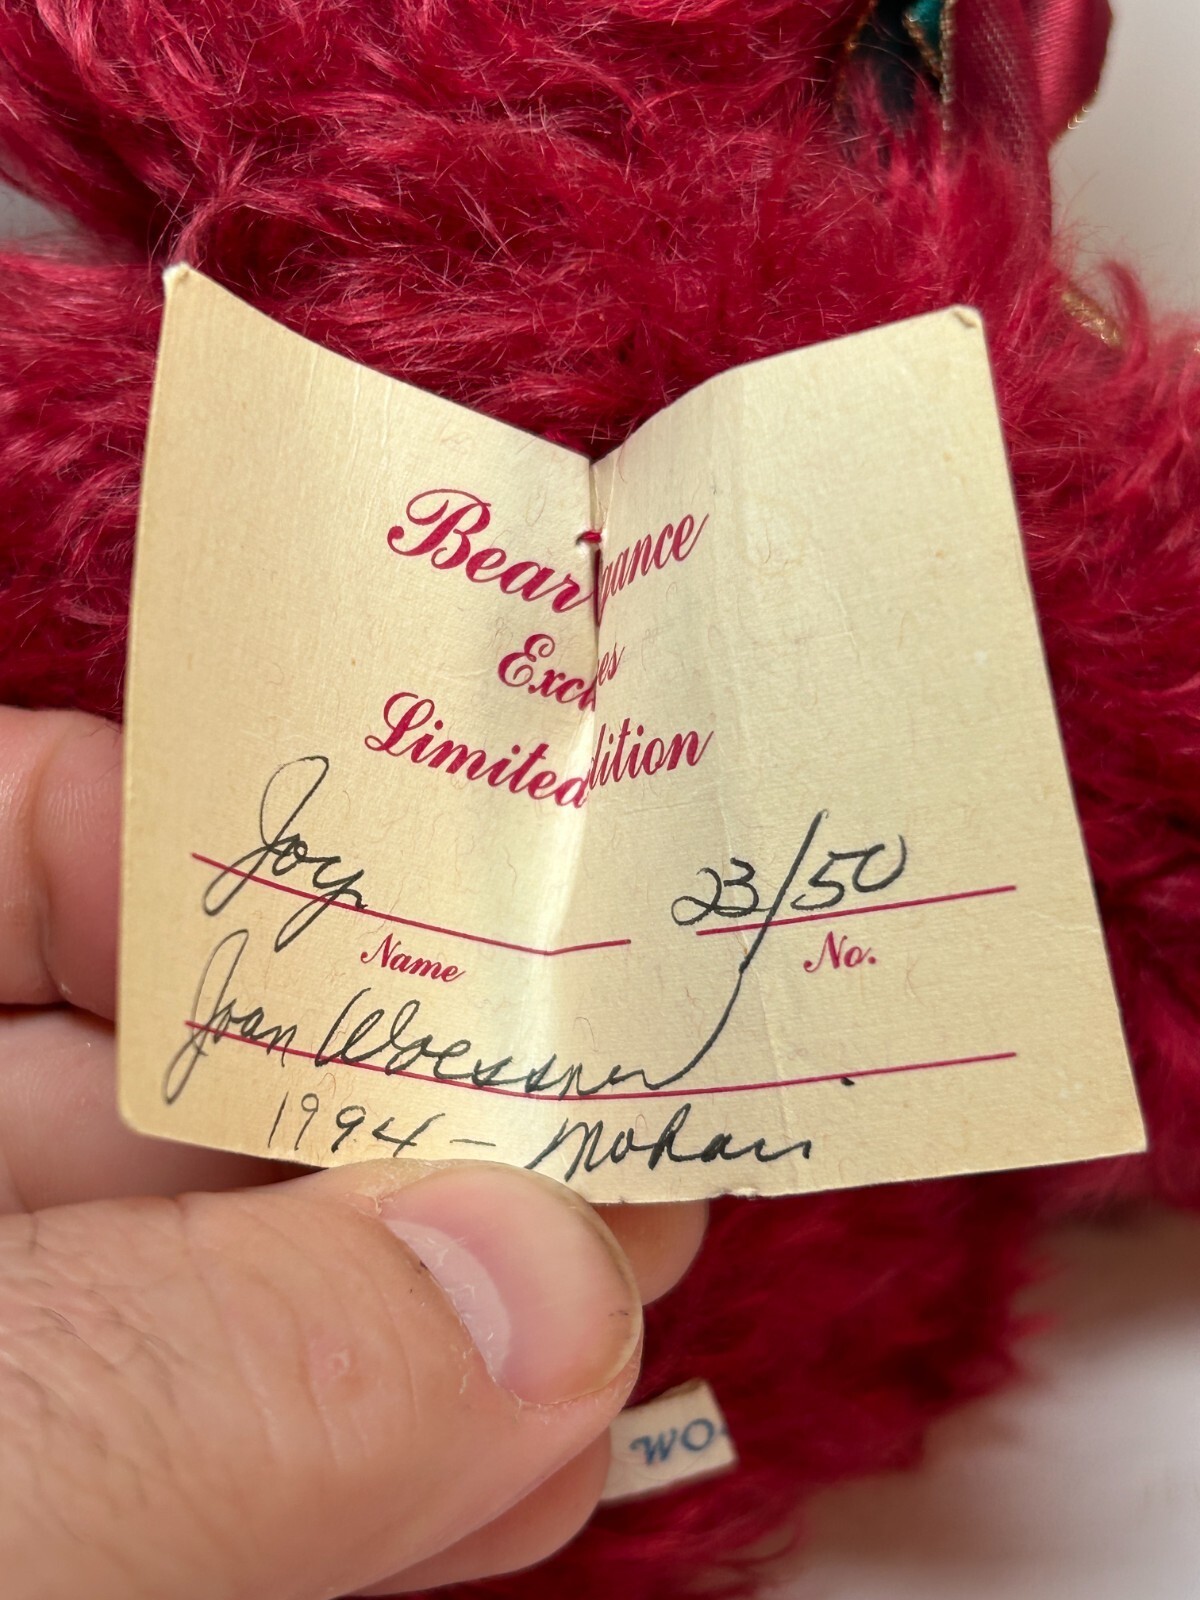 Bear gance
Exclu es
Limited dition
Joy 23/50
Name No.
Joan Woessner
1994 – Mohair
WO